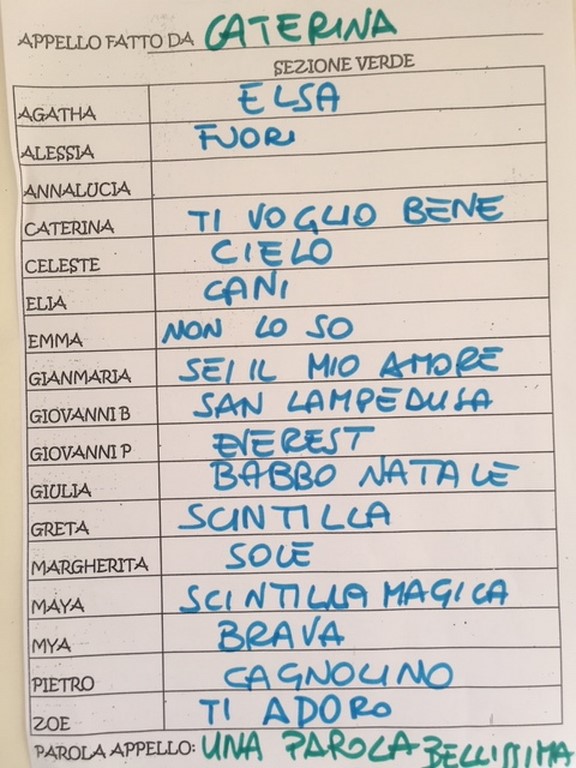 APPELLO FATTO DA CATERINA
SEZIONE VERDE
AGATHA ELSA
ALESSIA FUORI
ANNALUCIA
CATERINA TI VOGLIO BENE
CELESTE CIELO
ELIA CANI
EMMA NON LO SO
GIANMARIA SEI IL MIO AMORE
GIOVANNI B SAN LAMPEDUSA
GIOVANNI P EVEREST
GIULIA BABBO NATALE
GRETA SCINTILLA
MARGHERITA SOLE
MAYA SCINTILLA MAGICA
MYA BRAVA
PIETRO CAGNOLINO
ZOE TI ADORO
PAROLA APPELLO: UNA PAROLA BELLISSIMA